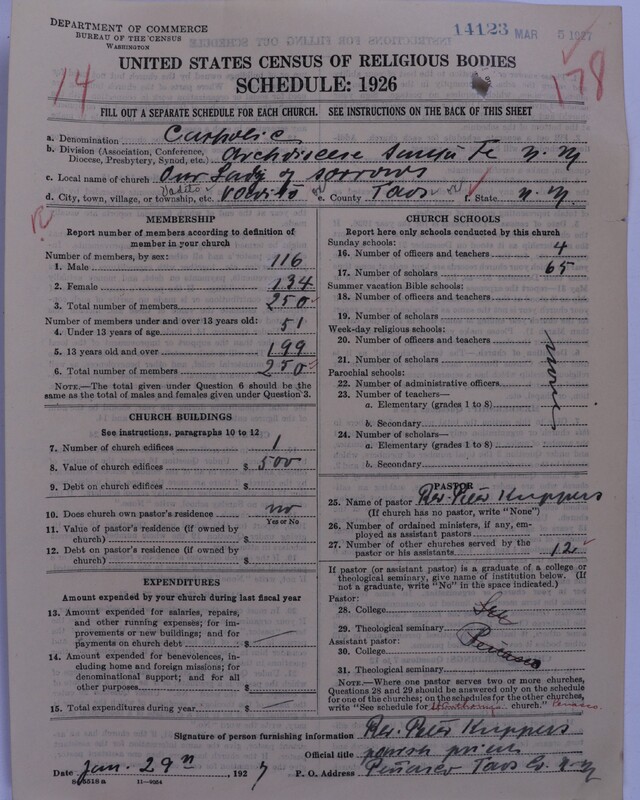 DEPARTMENT OF COMMERCE
BUREAU OF THE CENSUS
WASHINGTON
14123 MAR 5 1927
UNITED STATES CENSUS OF RELIGIOUS BODIES
SCHEDULE: 1926
14
178
FILL OUT A SEPARATE SCHEDULE FOR EACH CHURCH. SEE INSTRUCTIONS ON THE BACK OF THIS SHEET
a. Denomination Catholic
b. Division (Association, Conference, Diocese, Presbytery, Synod, etc.) Archdiocese Santa Fe N. M
c. Local name of church Our Lady of Sorrows
d. City, town, village, or township, etc. Vadito e. County Taos f. State N. M
MEMBERSHIP
Report number of members according to definition of member in your church
Number of members, by sex:
1. Male 116
2. Female 134
3. Total number of members 250
Number of members under and over 13 years old:
4. Under 13 years of age 51
5. 13 years old and over 199
6. Total number of members 250
NOTE.—The total given under Question 6 should be the same as the total of males and females given under Question 3.
CHURCH BUILDINGS
See instructions, paragraphs 10 to 12
7. Number of church edifices 1
8. Value of church edifices $ 500
9. Debt on church edifices $
10. Does church own pastor's residence? no
Yes or No
11. Value of pastor's residence (if owned by church) $
12. Debt on pastor's residence (if owned by church) $
EXPENDITURES
Amount expended by your church during last fiscal year
13. Amount expended for salaries, repairs, and other running expenses; for improvements or new buildings; and for payments on church debt $
14. Amount expended for benevolences, including home and foreign missions; for denominational support; and for all other purposes $
15. Total expenditures during year $
CHURCH SCHOOLS
Report here only schools conducted by this church
Sunday schools:
16. Number of officers and teachers 4
17. Number of scholars 65
Summer vacation Bible schools:
18. Number of officers and teachers
19. Number of scholars
Week-day religious schools:
20. Number of officers and teachers
21. Number of scholars
Parochial schools:
22. Number of administrative officers
23. Number of teachers—
a. Elementary (grades 1 to 8)
b. Secondary
24. Number of scholars—
a. Elementary (grades 1 to 8)
b. Secondary
PASTOR
25. Name of pastor Rev. Peter Kuppers
(If church has no pastor, write "None")
26. Number of ordained ministers, if any, employed as assistant pastors
27. Number of other churches served by the pastor or his assistants 12
If pastor (or assistant pastor) is a graduate of a college or theological seminary, give name of institution below. (If not a graduate, write "No" in the space indicated.)
Pastor:
28. College See
29. Theological seminary
Assistant pastor: Peñasco
30. College
31. Theological seminary
NOTE.—Where one pastor serves two or more churches, Questions 28 and 29 should be answered only on the schedule for one of the churches; on the schedules for the other churches, write "See schedule for church." Penasco.
Signature of person furnishing information Rev. Peter Kuppers
Official title parish priest
Date Jan. 29th, 1927 P. O. Address Peñasco Taos Co. N. M
11—9024